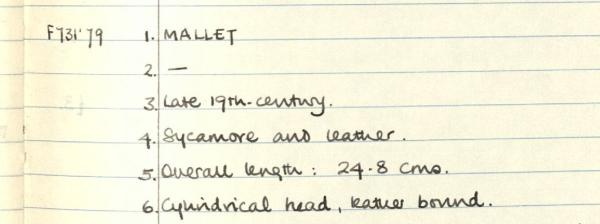 F731'79 1. MALLET
2. —
3. Late 19th-century.
4. Sycamore and leather.
5. Overall length: 24.8 cms.
6. Cylindrical head, leather bound.